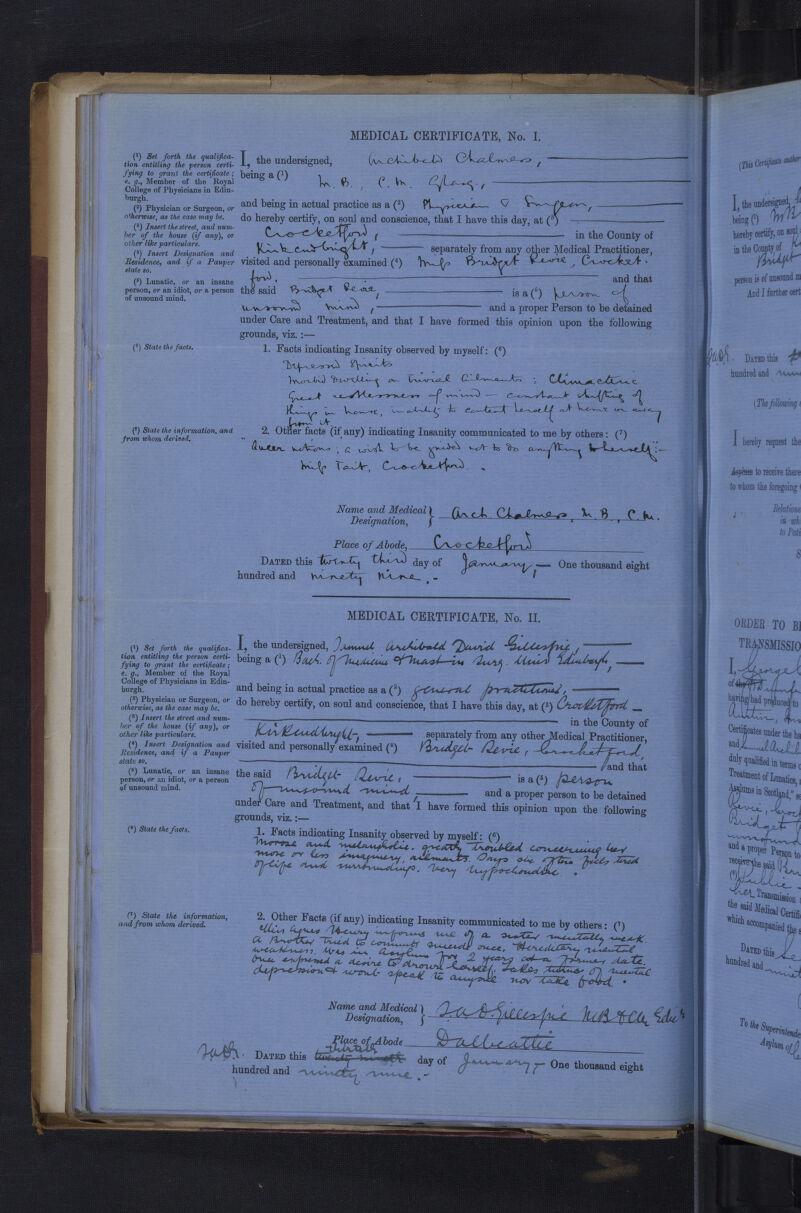 MEDICAL CERTIFICATE, No. I.
(¹) Set forth the qualifica-
tion entitling the person certi-
fying to grant the certificate;
e. g., Member of the Royal
College of Physicians in Edin-
burgh.
(²) Physician or Surgeon, or
otherwise, as the case may be.
(³) Insert the street, and num-
ber of the house (if any), or
other like particulars.
(⁴) Insert Designation and
Residence, and if a Pauper
state so.
(⁵) Lunatic, or an insane
person, or an idiot, or a person
of unsound mind.
I, the undersigned, Archibald Chalmers,
being a (¹) M. B., C. M. Glasg.,
and being in actual practice as a (²) Physician & Surgeon,
do hereby certify, on soul and conscience, that I have this day, at (³)
Crocketford, in the County of
Kirkcudbright, separately from any other Medical Practitioner,
visited and personally examined (⁴) Miss Bridget Revie, Crocket-
ford. and that
the said Bridget Revie, is a (⁵) person of
unsound mind, and a proper Person to be detained
under Care and Treatment, and that I have formed this opinion upon the following
grounds, viz. :—
(⁶) State the facts.
1. Facts indicating Insanity observed by myself: (⁶)
Depressed Spirits
Morbid dwelling on trivial ailments : Climacteric
Great restlessness of mind — constant shifting of
things in house, inability to content herself at home or away
from it
(⁷) State the information, and
from whom derived.
2. Other facts (if any) indicating Insanity communicated to me by others: (⁷)
Queer notions, a wish to be guided not to do anything to herself :—
Miss Tait, Crocketford.
Name and Medical Designation, Arch. Chalmers, M. B., C. M.
Place of Abode, Crocketford
DATED this twenty third day of January, One thousand eight
hundred and ninety nine.
MEDICAL CERTIFICATE, No. II.
(¹) Set forth the qualifica-
tion entitling the person certi-
fying to grant the certificate;
e. g., Member of the Royal
College of Physicians in Edin-
burgh.
(²) Physician or Surgeon, or
otherwise, as the case may be.
(³) Insert the street and num-
ber of the house (if any), or
other like particulars.
(⁴) Insert Designation and
Residence, and if a Pauper
state so.
(⁵) Lunatic, or an insane
person, or an idiot, or a person
of unsound mind.
I, the undersigned, Samuel Archibald David Gillespie,
being a (¹) Bach. of Medicine & Mast. in Surg. Univ. Edinburgh,
and being in actual practice as a (²) general practitioner,
do hereby certify, on soul and conscience, that I have this day, at (³) Crocketford
in the County of
Kirkcudbright, separately from any other Medical Practitioner,
visited and personally examined (⁴) Bridget Revie, Crocketford,
and that
the said Bridget Revie, is a (⁵) person
of unsound mind and a proper person to be detained
under Care and Treatment, and that I have formed this opinion upon the following
grounds, viz. :—
(⁶) State the facts.
1. Facts indicating Insanity observed by myself: (⁶)
Morose and melancholic. greatly troubled concerning her
more or less imaginary ailments. Says she often feels tired
of life and surroundings. Very hypochondriac.
(⁷) State the information,
and from whom derived.
2. Other Facts (if any) indicating Insanity communicated to me by others: (⁷)
Miss Agnes Henry informs me of a sister mentally weak.
A Brother tried to commit suicide once. Hereditary mental
weakness. Was in Asylum for 2 years at a former date.
Once expressed a desire to drown herself. Takes turns of mental
depression & wont speak to anyone nor take food.
Name and Medical Designation, S.A.D. Gillespie MB & CM Edinr
Place of Abode Dalbeattie
DATED this thirtieth day of January One thousand eight
hundred and ninety nine.
(This Certificate
I, the undersigned,
being (¹) M B
hereby certify, on soul
in the County of
person is of unsound
And I further
DATED this
hundred and
(The following
I hereby request the
Asylum to receive
to whom the foregoing
ORDER TO
I, George
Certificates under the
duly qualified in terms
Treatment of Lunatics,
Asylums in Scotland,"
Revie,
Bridget
and a proper Person to
receive the said
her Transmission
the said Medical
which accompanied the
DATED this
hundred and
To the
Asylum of